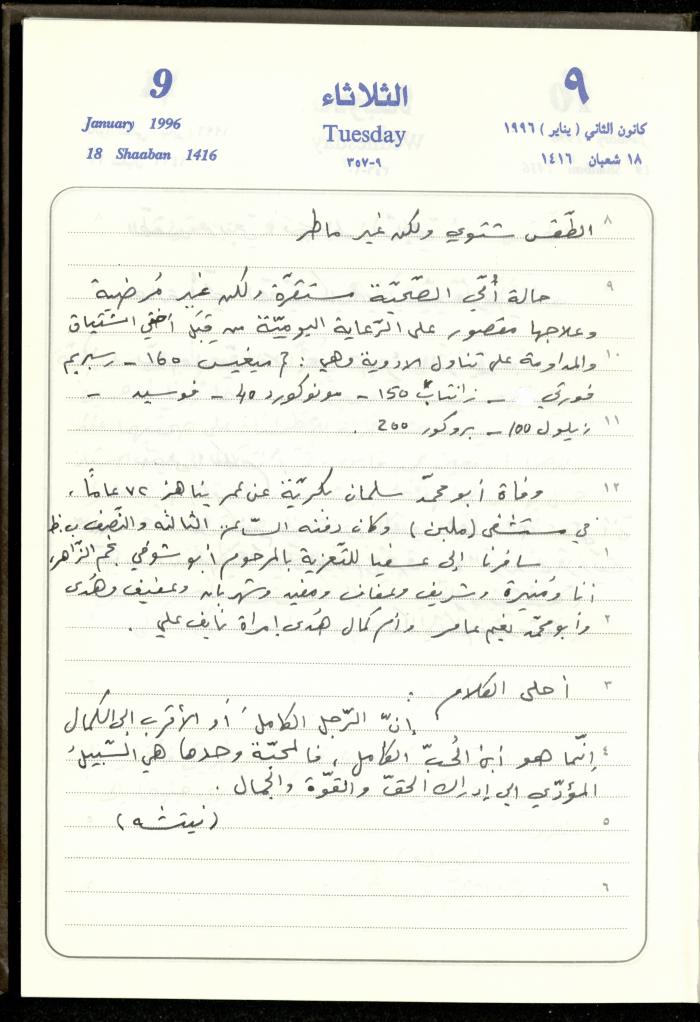 9
January 1996
18 Shaaban 1416
الثلاثاء
Tuesday
٩-٣٥٧
٩
كانون الثاني ( يناير ) ١٩٩٦
١٨ شعبان ١٤١٦
٨ الطّقس شتوي ولكن غير ماطر
٩ حالة أُمّي الصّحيّة مستقرّة ولكن غير مُرضية
وعلاجها مقصور على الرّعاية اليوميّة من قِبَل أختي اشتياق
١٠ والمداومة على تناول الادوية وهي : 160 -
فورتي - زانتاب 150 - مونوكورد 40 - فوسيد -
١١ زيلول 100 - بروكور 200 .
١٢ وفاة أبو محمّد سلمان بكريّة عن عمر يناهز ٧٢ عاماً .
في مستشفى ( ) وكان دفنه السّاعة الثالثة والنّصف ب.ظ
١ سافرنا إلى عسفيا للتّعزية بالمرحوم أبو شوقي نجم الزّاهر،
أنا ومُنيرة وشريف وعفاف ومفيد وشهربان وعفيف وهُدى
٢ وأبو محمّد نعيم عامر وأم كمال هُدى إمرأة نايف علي .
٣ أحلى الكلام :
إنّ الرّجل الكامل، أو الأقرب إلى الكمال
٤ إنّما هو أبنُ الحُبّ الكامل ، فالمحبّة وحدها هي السّبيلُ
المؤدّي إلى إدراك الحقّ والقوّة والجمال .
٥ ( نيتشه )
٦